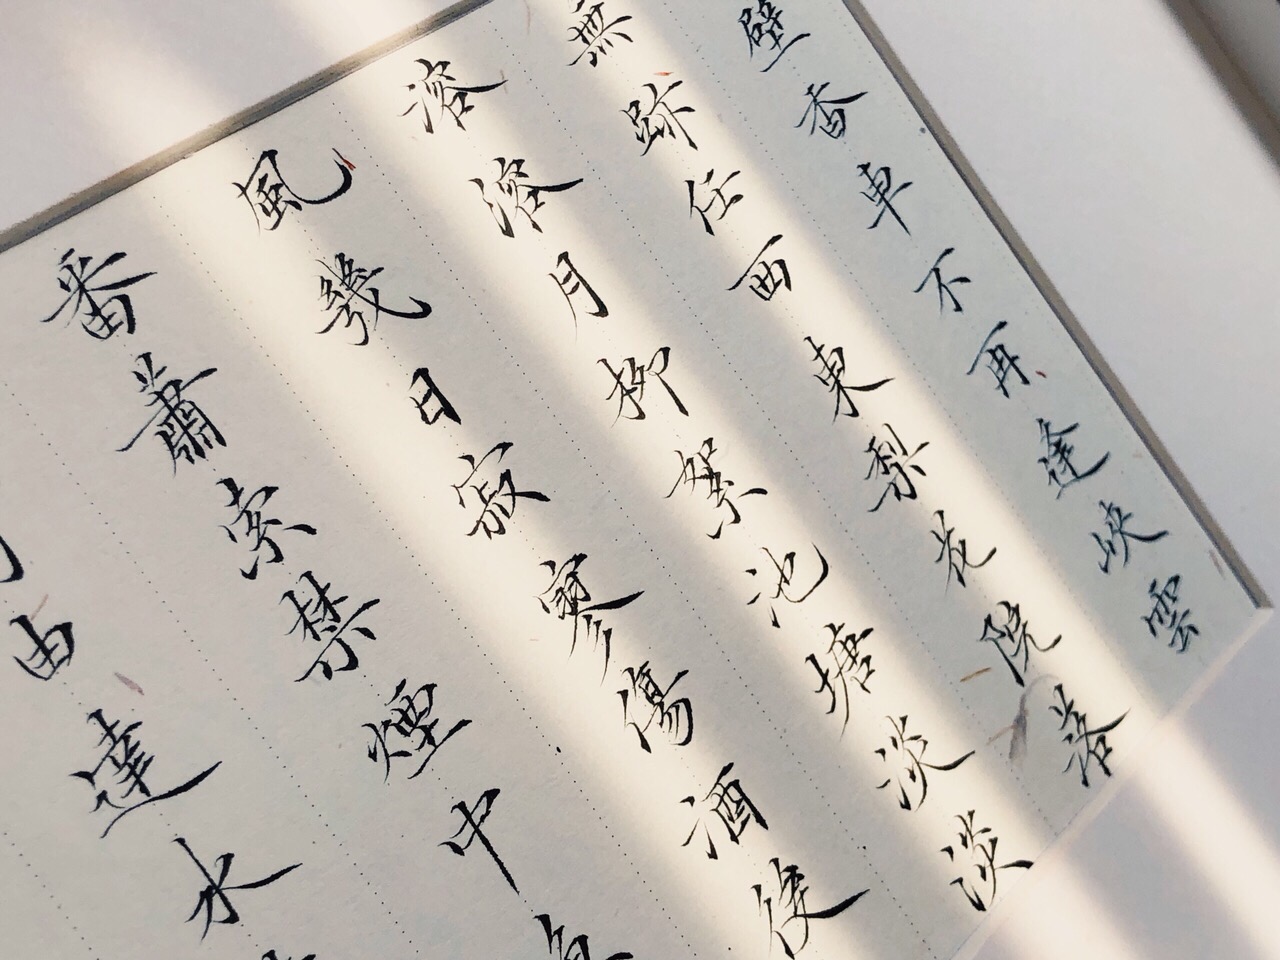 壁香車不再逢峽雲
無跡任西東梨花院落
溶溶月柳絮池塘淡淡
風幾日寂寥傷酒後
番蕭索禁煙中魚
由達水